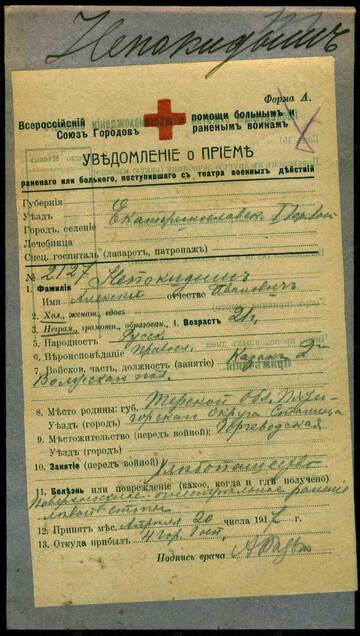 Непокидышъ
Форма А.
Всероссійскій
Союзъ Городовъ
помощи больнымъ и
раненымъ воинамъ
УВѢДОМЛЕНІЕ о ПРІЕМѢ
раненаго или больного, поступившаго съ театра военныхъ дѣйствій
Губернія
Уѣздъ Екатеринославск
Городъ, селеніе
Лечебница
Спец. госпиталь (лазаретъ, патронажъ)
№ 2127 Непокидышъ
1. Фамилія
Имя Алексѣй отчество Ивановичъ
2. Хол., женат., вдовъ
3. Неграм., грамотн., образован. 4. Возрастъ
5. Народность Русск
6. Вѣроисповѣданіе Правосл.
7. Войсков. часть, должность (занятіе) Казакъ 2-
Волгскаго
8. Мѣсто родины: губ. Терской Обл. Пяти-
Уѣздъ (городъ) горскаго Округа Станица
9. Мѣстожительство (передъ войной) Горгеводская
Уѣздъ (городъ)
10. Занятіе (передъ войной) Хлѣбопашество
11. Болѣзнь или поврежденіе (какое, когда и гдѣ получено)
огнестрѣльное раненіе
лѣвой стопы
12. Принятъ мѣс. 20 числа 191
13. Откуда прибылъ 4 гор. Госп.
Подпись врача